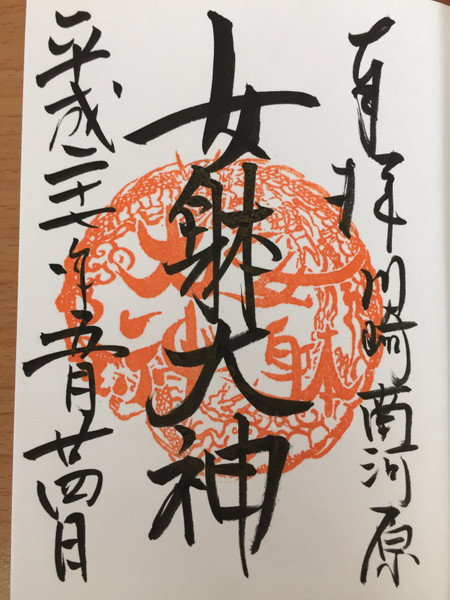 奉拝 川崎南河原
女躰大神
平成二十七年五月廿四日